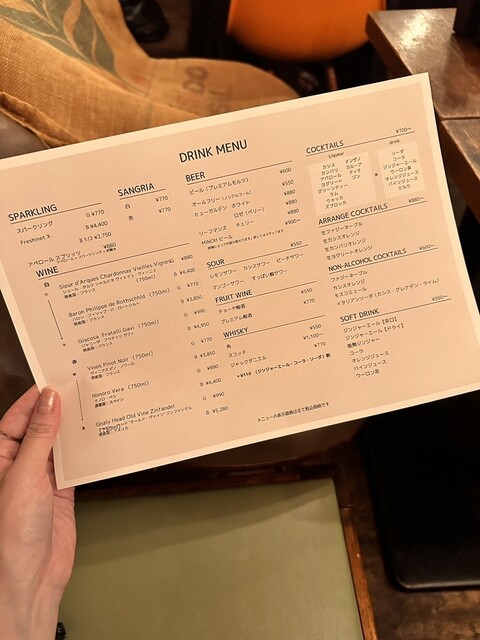 DRINK MENU
SPARKLING
スパークリング G ¥770
B ¥4,400
Freshinet X B 1/2 ¥2,750
アペロール スプリッツ ¥880
SANGRIA
白 ¥770
赤 ¥770
WINE
白
Sieur d'Arques Chardonnay Vieilles Vignes
(750ml)
G ¥880
B ¥4,400
Baron Philippe de Rothschild (750ml)
G ¥770
B ¥3,850
Giacosa Fratelli Gavi (750ml)
G ¥990
B ¥4,950
赤
Vinos Pinot Noir (750ml)
G ¥770
B ¥3,850
Honoro Vera (750ml)
G ¥880
B ¥4,400
Gnaly Head Old Vine Zinfandel
(750ml)
G ¥990
B ¥5,280
BEER
ビール (プレミアムモルツ) ¥600
オールフリー (ノンアルコール) ¥550
ヒューガルデン ホワイト ¥880
ロゼ (ベリー) ¥880
リーフマンス チェリー ¥880
MINOH ビール ¥900~
SOUR ¥550
レモンサワー カシスサワー ピーチサワー
マンゴーサワー すっぱい梅サワー
FRUIT WINE
チョーヤ梅酒 ¥550
プレミアム梅酒 ¥770
WHISKY
角 ¥550
スコッチ ¥770
ジャックダニエル ¥1,500~
+¥110 (ジンジャーエール・コーラ・ソーダ) 割
COCKTAILS ¥700~
Liqueur
カシス
カンパリ
アペロール
ヨーグルト
グリーンティー
ラム
ウォッカ
ズブロッカ
カルーア
ディタ
ジン
×
drink
ソーダ
コーラ
ジンジャーエール
ウーロン茶
オレンジジュース
パインジュース
ミルク
ARRANGE COCKTAILS ¥880~
生ファジーネーブル
生カシスオレンジ
生カンパリオレンジ
生ヨグリートオレンジ
NON-ALCOHOL COCKTAILS ¥660~
ファジーネーブル
カシスオレンジ
モスコミュール
イタリアンソーダ (カシス・グレナデン・ライム)
SOFT DRINK ¥550~
ジンジャーエール【辛口】
ジンジャーエール【ドライ】
コーラ
オレンジジュース
パインジュース
ウーロン茶
メニューの表示価格は全て税込価格です